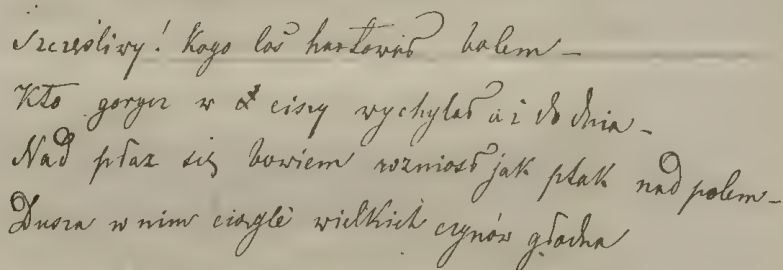 Szczęśliwy! Kogo los hartował bolem –
Kto gorycz w ciszy wychylał aż do dnia –
Nad płaz się bowiem wzniosł jak ptak nad polem –
Dusza w nim ciągle wielkich czynów głodna